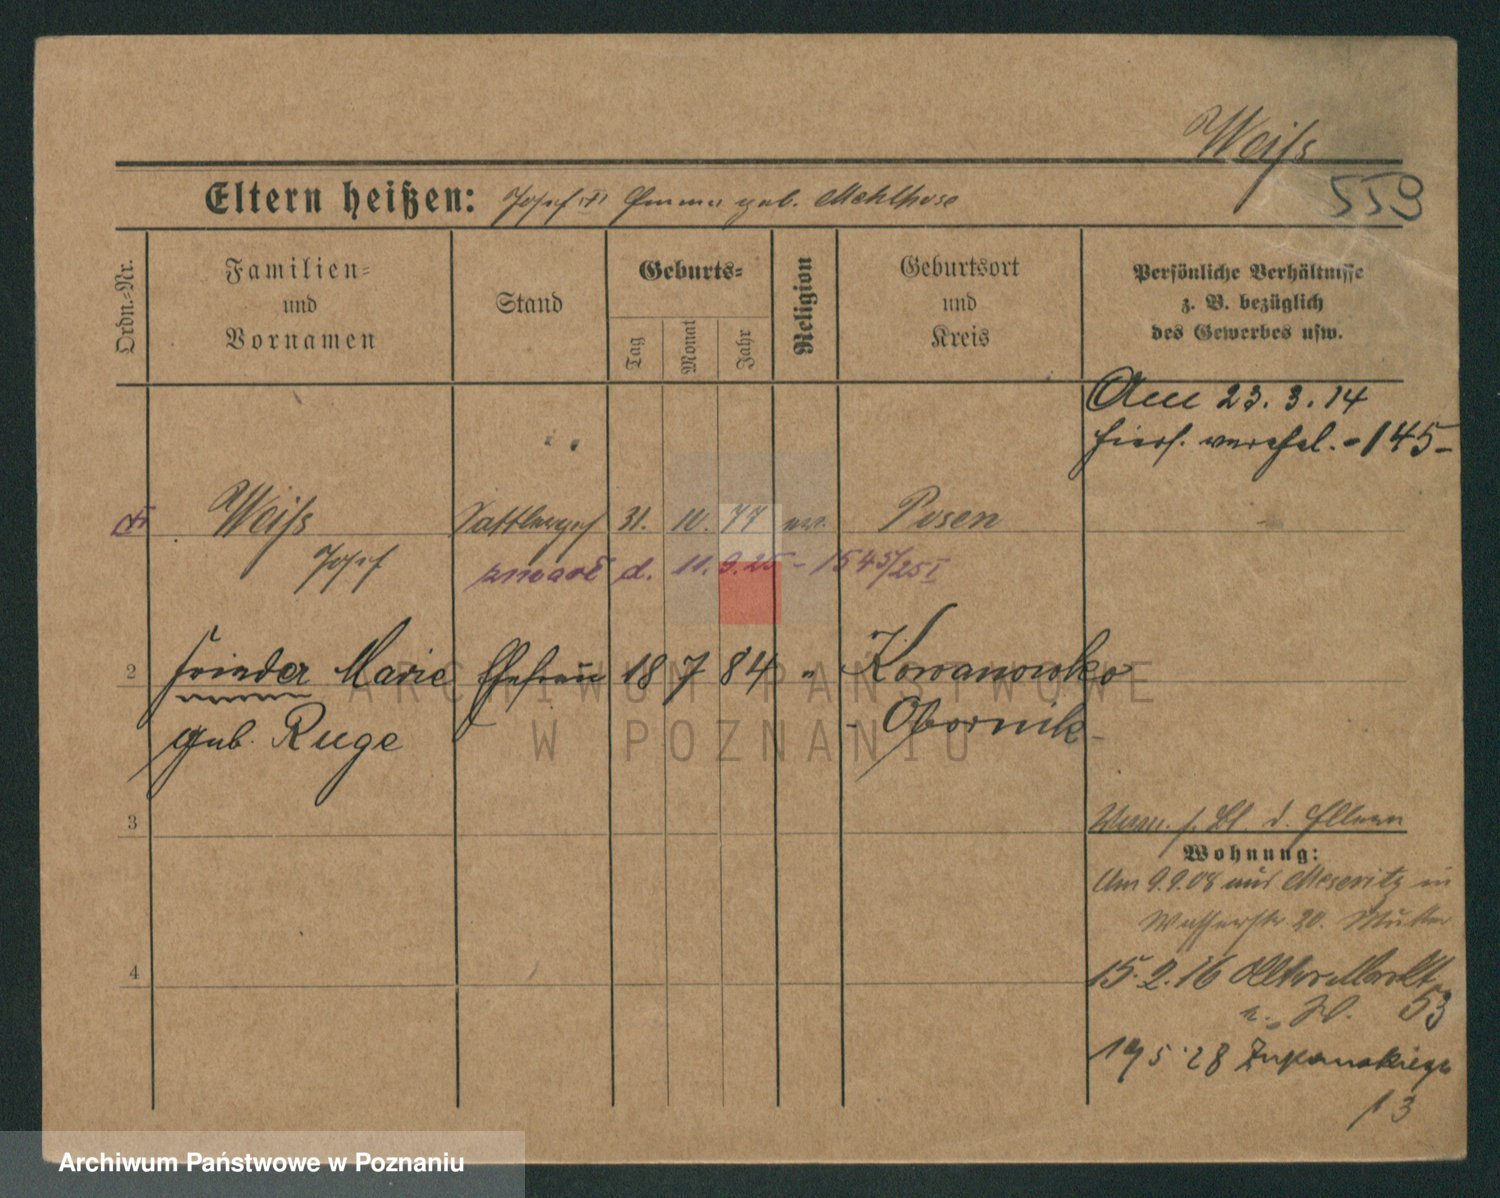 Weiſs
559
Eltern heißen: Josef u Emma geb. Mehlhose
Ordn.=Nr.
Familien=
und
Vornamen
Stand
Geburts=
Tag
Monat
Jahr
Religion
Geburtsort
und
Kreis
Persönliche Verhältnisse
z. B. bezüglich
des Gewerbes usw.
Am 23. 3. 14
hiers. verehel. - 145 -
Weiſs
Josef
Sattlerges 31. 10. 77 ev. Posen
zmarł d. 11. 9. 25 - 1545/25 I
2 Frieder Marie Ehefrau 18 7 84 " Kowanowko
geb. Ruge - Obornik -
3
4
d. Eltern
Wohnung:
Am 9.9.08 aus Meseritz in
Wasserstr. 20. Mutter
15. 2. 16 Alter Markt
53
19 5 28 Zupanskiego
13
ARCHIWUM PAŃSTWOWE
W POZNANIU
Archiwum Państwowe w Poznaniu